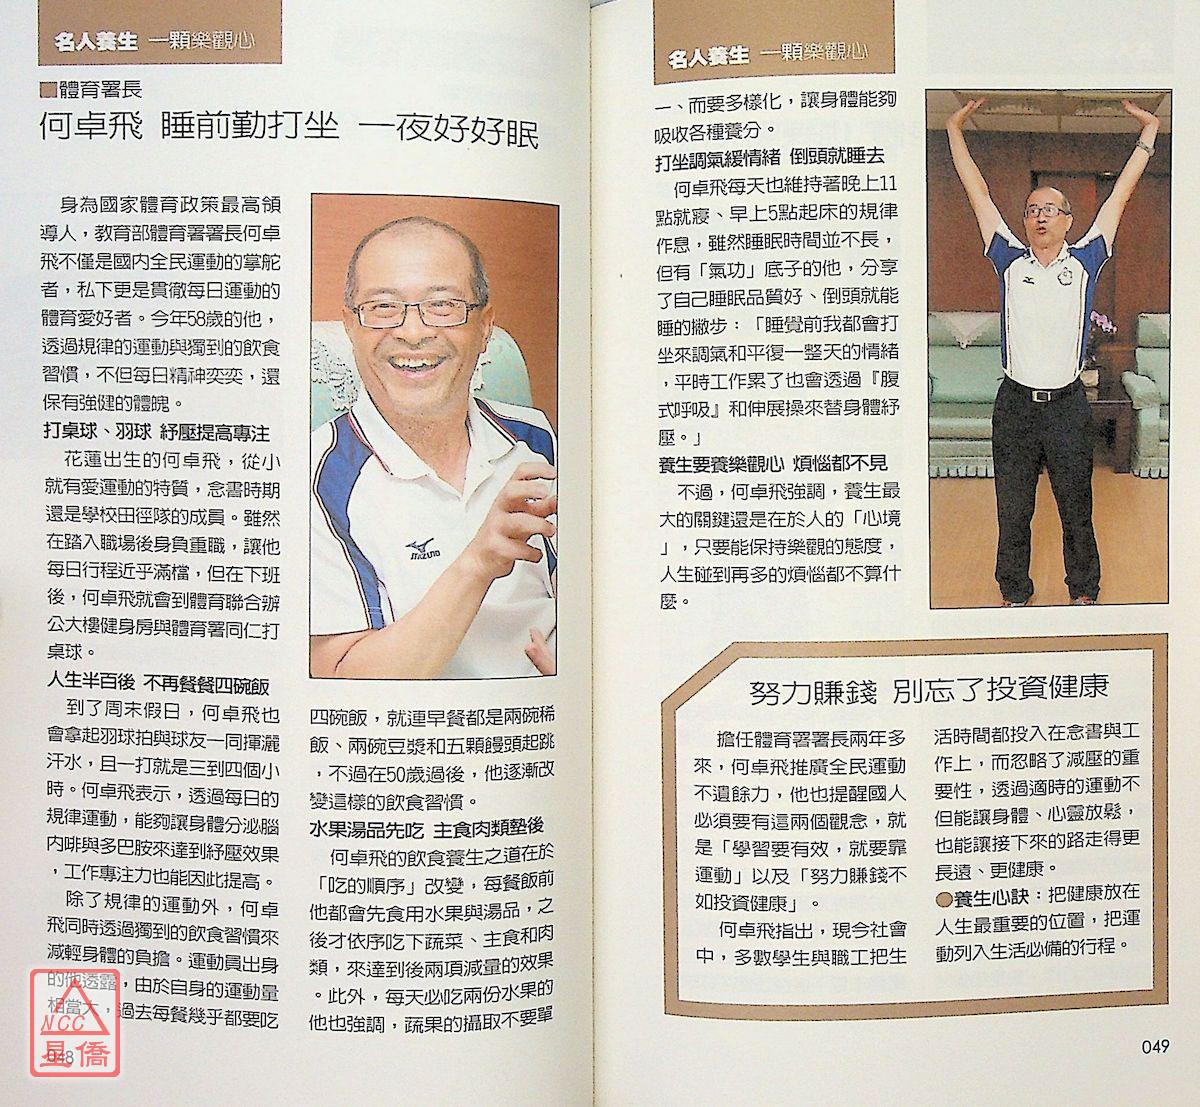 名人養生 一顆樂觀心
■體育署長
何卓飛 睡前勤打坐 一夜好好眠
身為國家體育政策最高領
導人，教育部體育署署長何卓
飛不僅是國內全民運動的掌舵
者，私下更是貫徹每日運動的
體育愛好者。今年58歲的他，
透過規律的運動與獨到的飲食
習慣，不但每日精神奕奕，還
保有強健的體魄。
打桌球、羽球 紓壓提高專注
花蓮出生的何卓飛，從小
就有愛運動的特質，念書時期
還是學校田徑隊的成員。雖然
在踏入職場後身負重職，讓他
每日行程近乎滿檔，但在下班
後，何卓飛就會到體育聯合辦
公大樓健身房與體育署同仁打
桌球。
人生半百後 不再餐餐四碗飯
到了周末假日，何卓飛也
會拿起羽球拍與球友一同揮灑
汗水，且一打就是三到四個小
時。何卓飛表示，透過每日的
規律運動，能夠讓身體分泌腦
內啡與多巴胺來達到紓壓效果
，工作專注力也能因此提高。
除了規律的運動外，何卓
飛同時透過獨到的飲食習慣來
減輕身體的負擔。運動員出身
的他透露，由於自身的運動量
相當大，過去每餐幾乎都要吃
MIZUNO
四碗飯，就連早餐都是兩碗稀
飯、兩碗豆漿和五顆饅頭起跳
，不過在50歲過後，他逐漸改
變這樣的飲食習慣。
水果湯品先吃 主食肉類墊後
何卓飛的飲食養生之道在於
「吃的順序」改變，每餐飯前
他都會先食用水果與湯品，之
後才依序吃下蔬菜、主食和肉
類，來達到後兩項減量的效果
。此外，每天必吃兩份水果的
他也強調，蔬果的攝取不要單
048
NCC
星僑
名人養生 一顆樂觀心
一、而要多樣化，讓身體能夠
吸收各種養分。
打坐調氣緩情緒 倒頭就睡去
何卓飛每天也維持著晚上11
點就寢、早上5點起床的規律
作息，雖然睡眠時間並不長，
但有「氣功」底子的他，分享
了自己睡眠品質好、倒頭就能
睡的撇步：「睡覺前我都會打
坐來調氣和平復一整天的情緒
，平時工作累了也會透過『腹
式呼吸』和伸展操來替身體紓
壓。」
養生要養樂觀心 煩惱都不見
不過，何卓飛強調，養生最
大的關鍵還是在於人的「心境
」，只要能保持樂觀的態度，
人生碰到再多的煩惱都不算什
麼。
努力賺錢 別忘了投資健康
擔任體育署署長兩年多
來，何卓飛推廣全民運動
不遺餘力，他也提醒國人
必須要有這兩個觀念，就
是「學習要有效，就要靠
運動」以及「努力賺錢不
如投資健康」。
何卓飛指出，現今社會
中，多數學生與職工把生
活時間都投入在念書與工
作上，而忽略了減壓的重
要性，透過適時的運動不
但能讓身體、心靈放鬆，
也能讓接下來的路走得更
長遠、更健康。
●養生心訣：把健康放在
人生最重要的位置，把運
動列入生活必備的行程。
049